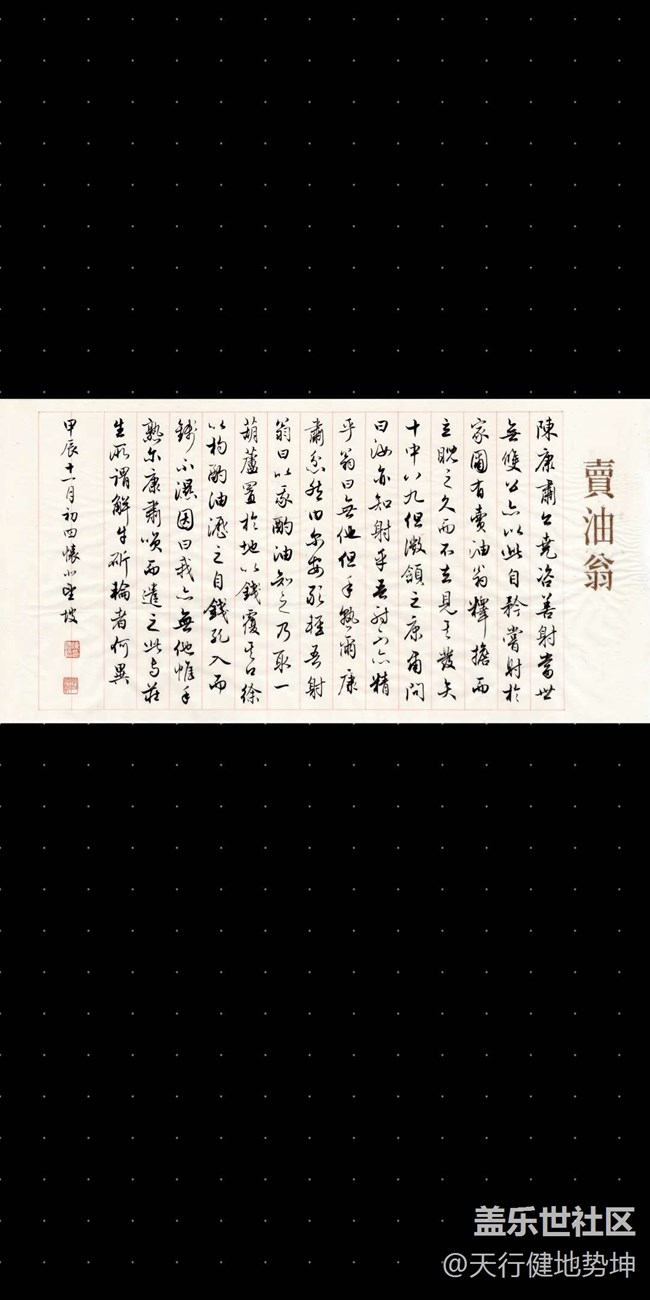 賣油翁
陳康肅公堯咨善射當世
無雙公亦以此自矜嘗射於
家圃有賣油翁釋擔而
立睨之久而不去見其發矢
十中八九但微頷之康肅問
曰汝亦知射乎吾射不亦精
乎翁曰無他但手熟爾康
肅忿然曰尔安敢輕吾射
翁曰以我酌油知之乃取一
葫蘆置於地以錢覆其口徐
以杓酌油瀝之自錢孔入而
錢不濕因曰我亦無他惟手
熟尔康肅笑而遣之此与莊
生所謂解牛斫輪者何異
甲辰十一月初四懷
坡
盖乐世社区
@天行健地势坤